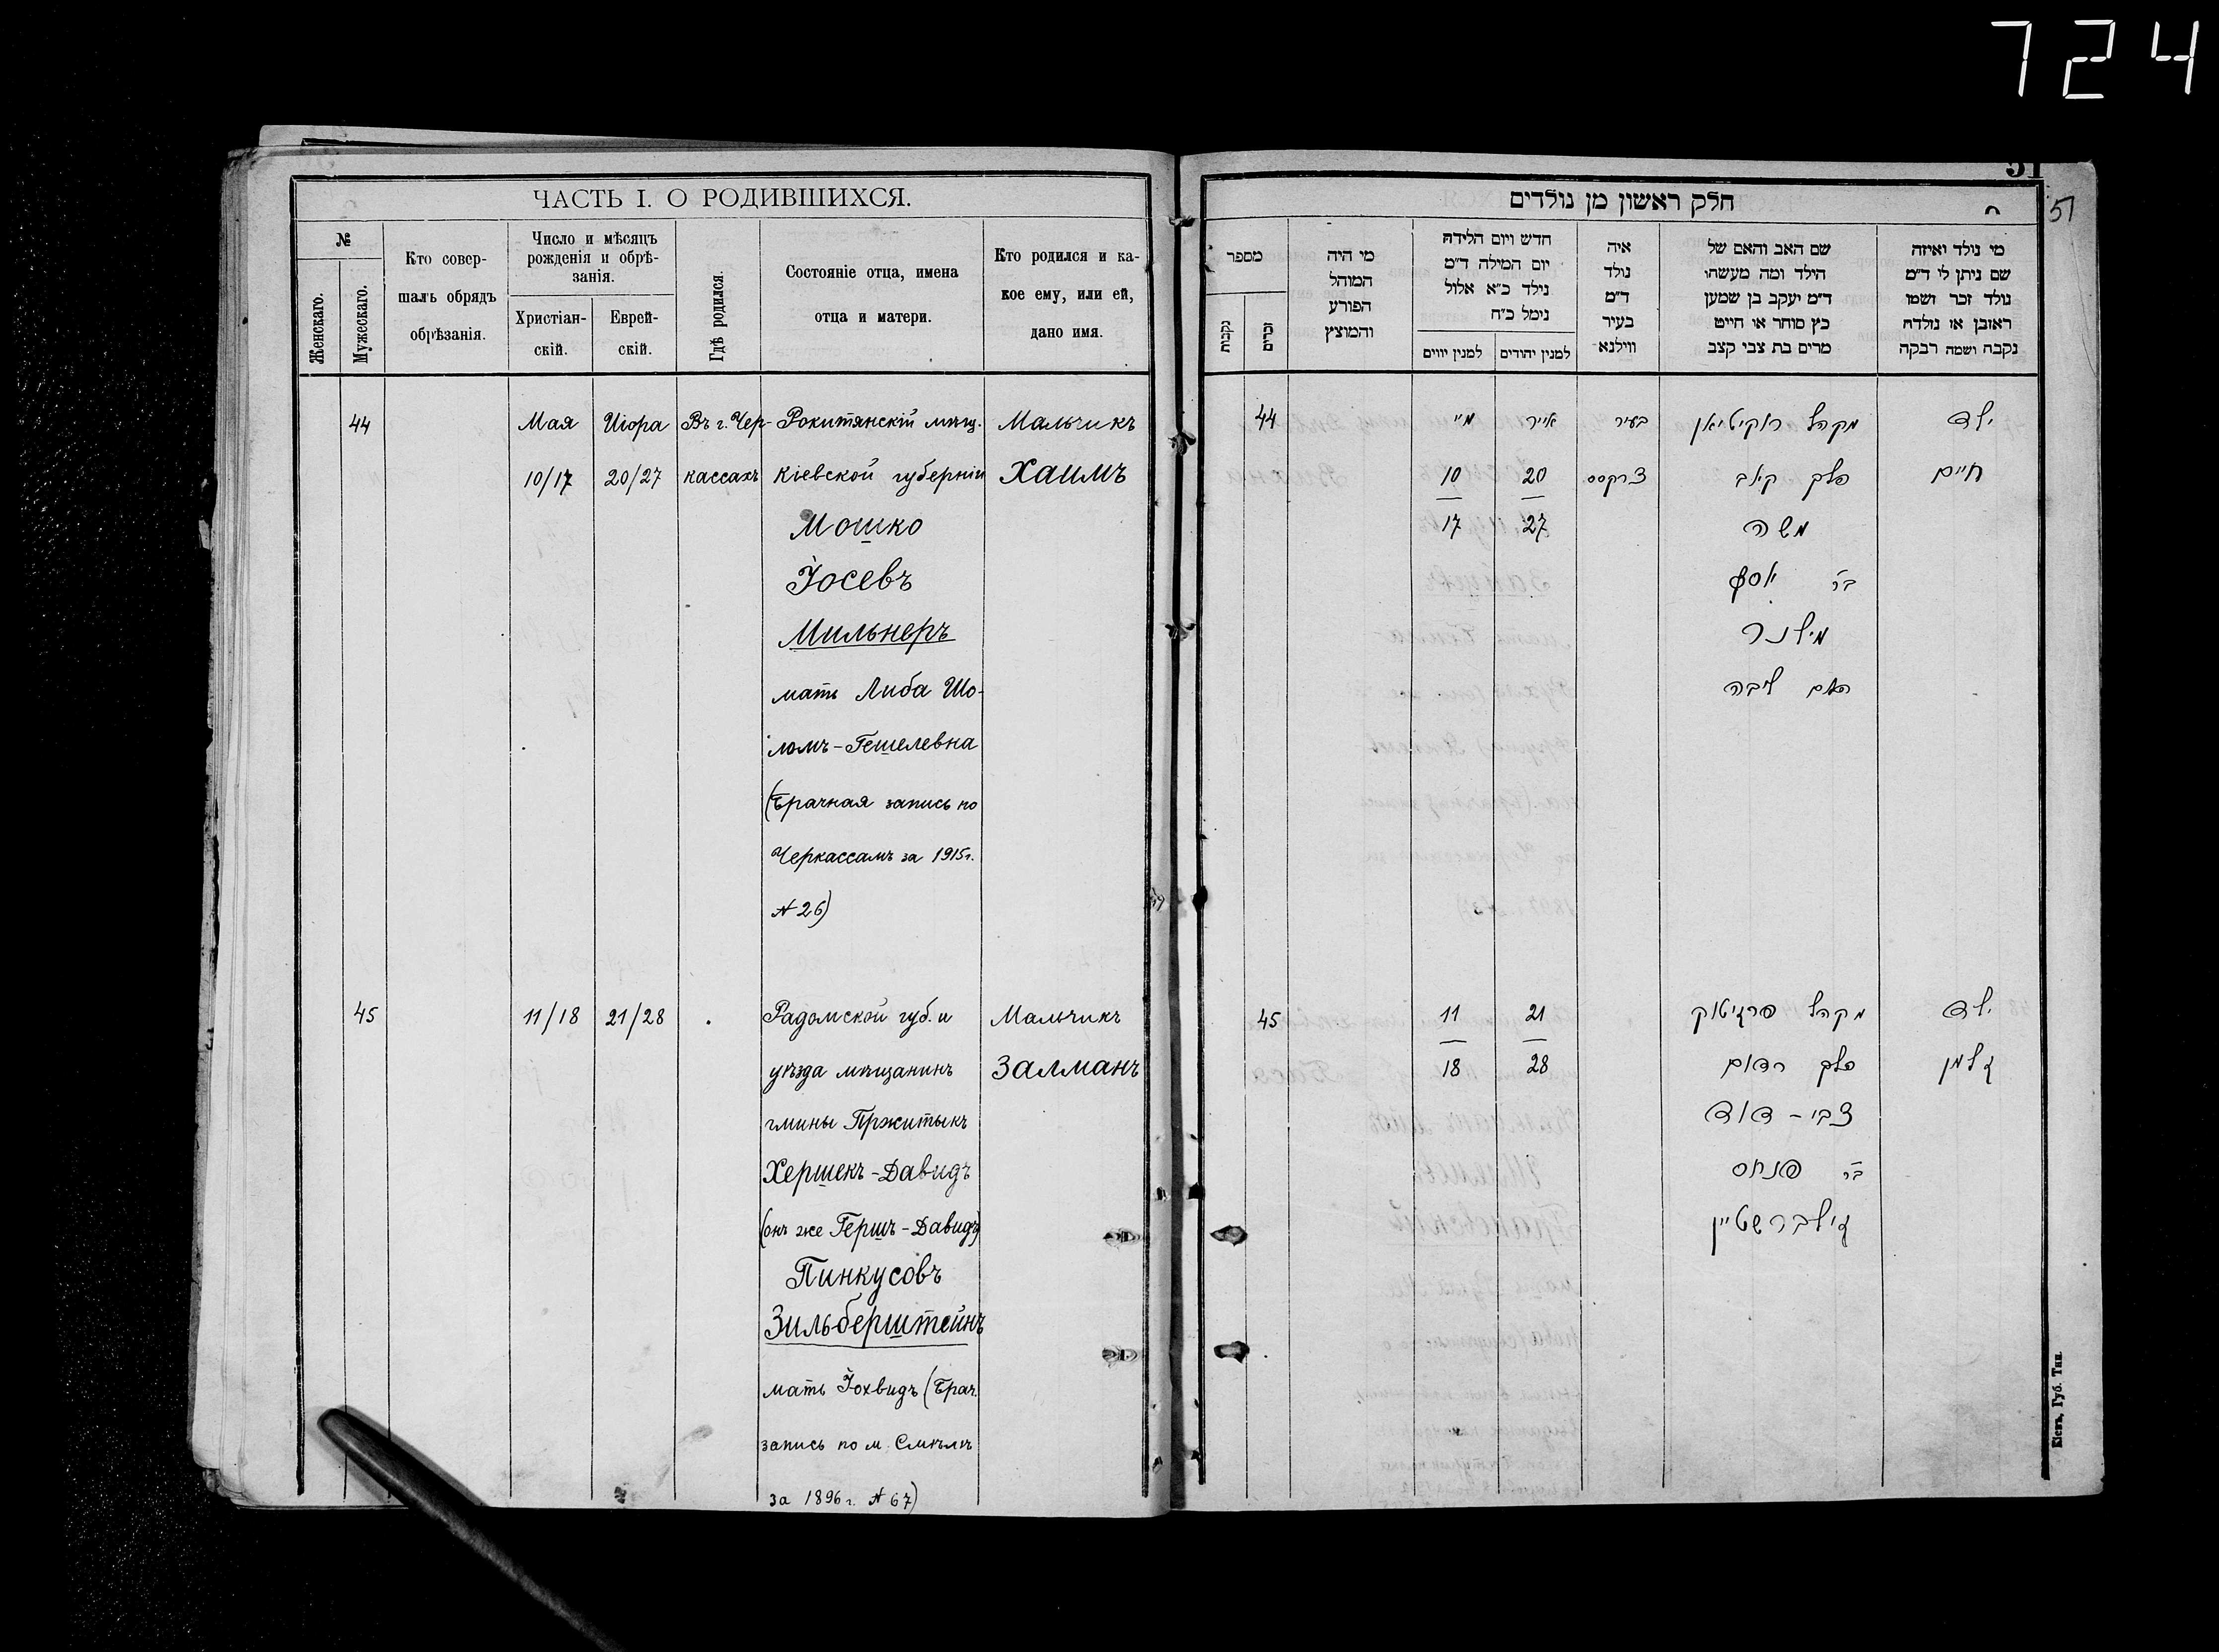 724
ЧАСТЬ I. О РОДИВШИХСЯ.
№
Женскаго.
Мужескаго.
Кто совер-
шалъ обрядъ
обрѣзанія.
Число и мѣсяцъ
рожденія и обрѣ-
занія.
Христіан-
скій.
Еврей-
скій.
Гдѣ родился.
Состояніе отца, имена
отца и матери.
Кто родился и ка-
кое ему, или ей,
дано имя.
44 Мая Иіора Въ г. Чер- Рокитянскій мѣщ. Мальчикъ
10/17 20/27 кассахъ Кіевской губерніи Хаимъ
Мошко
Іосевъ
Мильнеръ
мать Либа Шо-
ломъ-Гешелевна
(Брачная запись по
Черкассамъ за 1915г.
№ 26)
45 11/18 21/28 Радомской губ. и Мальчикъ
уѣзда мѣщанинъ Залманъ
гмины Пржитыкъ
Хершекъ-Давидъ
(онъ же Гершъ-Давидъ)
Пинкусовъ
Зильберштейнъ
мать Іохвидъ (Брач.
запись по м. Смѣлѣ
за 1896г. № 67)
51
51
חלק ראשון מן נולדים
מספר
נקבות
זכרים
מי היה
המוהל
הפורע
והמוצץ
חדש ויום הלידה
יום המילה ד"מ
נילד כ"א אלול
נימל כ"ח
למנין יווים
למנין יהודים
איה
נולד
ד"מ
בעיר
ווילנא
שם האב והאם של
הילד ומה מעשהו
ד"מ יעקב בן שמען
כץ סוחר או חייט
מרים בת צבי קצב
מי נולד ואיזה
שם ניתן לי ד"מ
נולד זכר ושמו
ראובן או נולדה
נקבה ושמה רבקה
ילד מקהל רוקיטיאן בעיר אייר מיי 44
חיים פלך קיוב צרקסס 20 10
משה 27 17
בר יוסף
מילנר
האם ליבה
ילד מקהל פרזיטוק 21 11 45
זלמן פלך ראדום 28 18
צבי-דוד
בר פנחס
זילברשטיין
Кіевъ, Губ. Тип.